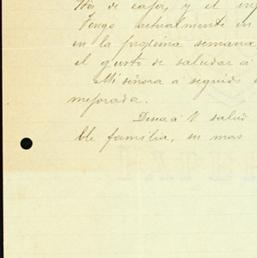 tto de cafe, y el in
Tengo actualmente en
en la proxima semana
el gusto de saludar á
Mi señora a seguido
mejorada.
Desea á V salud
ble familia, su mas